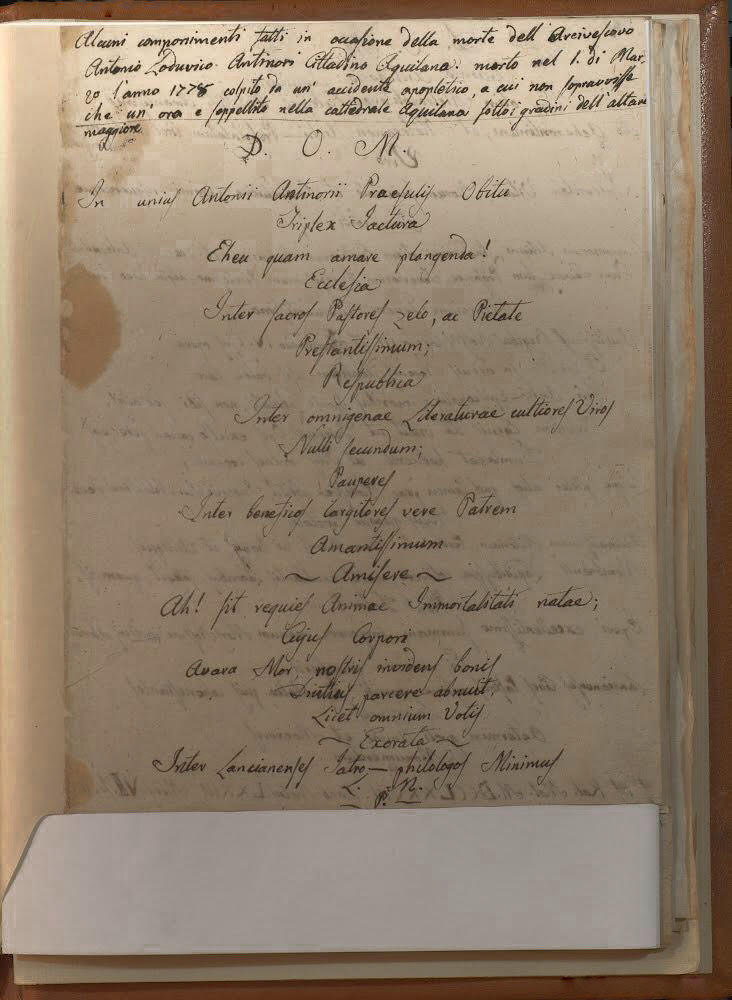 Alcuni componimenti fatti in occasione della morte dell'Arcivescovo
Antonio Lodovico Antinori Cittadino Aquilano: morto nel 1. di Mar-
zo l'anno 1778 colpito da un' accidente apopletico, a cui non sopravvisse
che un' ora e seppellito nella cattedrale Aquilana sotto i gradini dell'altare
maggiore.
D. O. M.
In unius Antonii Antinorii Praesulis Obitu
Triplex Jactura
Eheu quam amare plangenda!
Ecclesia
Inter sacros Pastores zelo, ac Pietate
Prestantissimum;
Respublica
Inter omnigenae Literaturae cultiores Viros
Nulli secundum;
Pauperes
Inter beneficos largitores vere Patrem
Amantissimum
~ Amisere ~
Ah! sit requies Animae Immortalitati natae;
Cujus Corpori
Avara Mor, nostris invidens bonis
Diutius parcere abnuit,
Licet omnium Votis
~ Exorata ~
Inter Lancianenses Jatro-philologos Minimus
L. N.
P.